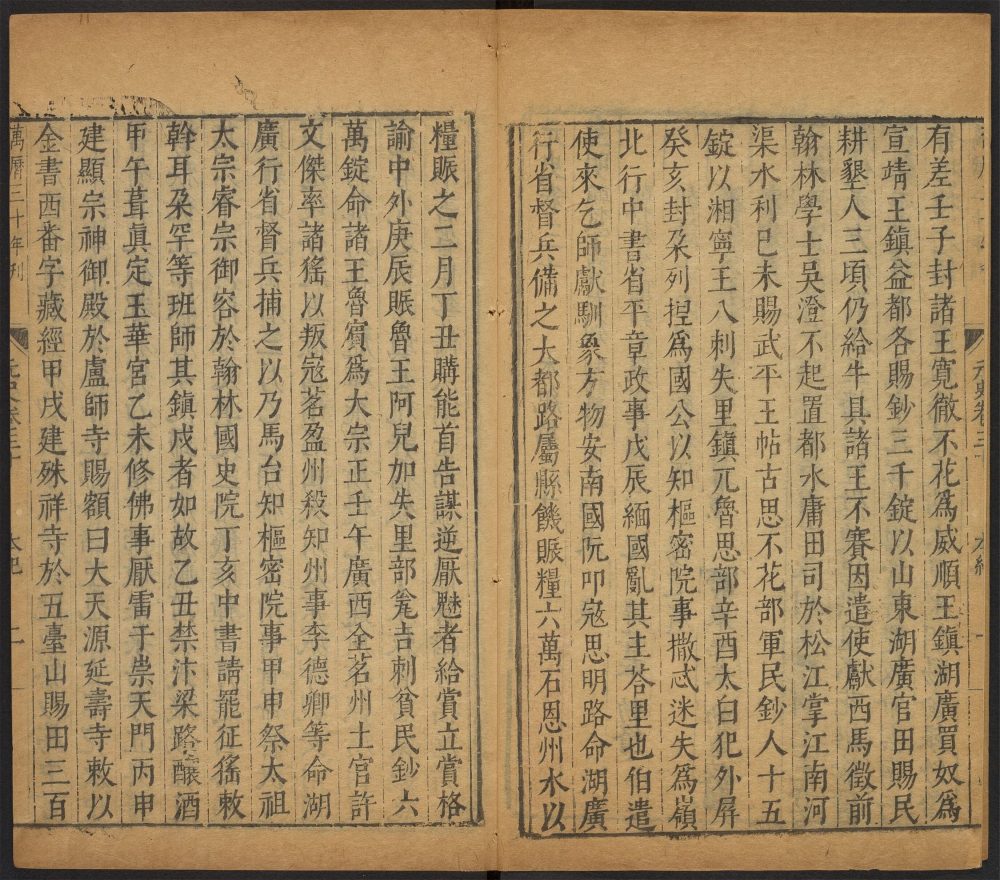 有差壬子封諸王寬徹不花爲威順王鎮湖廣買奴爲
宣靖王鎮益都各賜鈔三千錠以山東湖廣官田賜民
耕墾人三項仍給牛具諸王不賽因遣使獻西馬徵前
翰林學士吳澄不起置都水庸田司於松江掌江南河
渠水利巳未賜武平王帖古思不花部軍民鈔人十五
錠以湘寧王八剌失里鎮兀魯思部辛酉太白犯外屏
癸亥封朶列揑爲國公以知樞密院事撒忒迷失爲嶺
北行中書省平章政事戊辰緬國亂其主荅里也伯遣
使來乞師獻馴象方物安南國阮叩寇思明路命湖廣
行省督兵備之大都路屬縣饑賑糧六萬石恩州水以
糧賑之二月丁丑購能首告謀逆厭魅者給賞立賞格
諭中外庚辰賑魯王阿兒加失里部瓮吉刺貧民鈔六
萬錠命諸王魯賓爲大宗正壬午廣西全茗州土官許
文傑率諸猺以叛寇茗盈州殺知州事李德卿等命湖
廣行省督兵捕之以乃馬台知樞密院事甲申祭太祖
太宗睿宗御容於翰林國史院丁亥中書請罷征猺敕
斡耳朶罕等班師其鎮戍者如故乙丑禁汴梁路釀酒
甲午葺眞定玉華宮乙未修佛事厭雷于崇天門丙申
建顯宗神御殿於盧師寺賜額曰大天源延壽寺敕以
金書西番字藏經甲戌建殊祥寺於五臺山賜田三百
萬曆三十年刋
元史卷三十 本紀 二